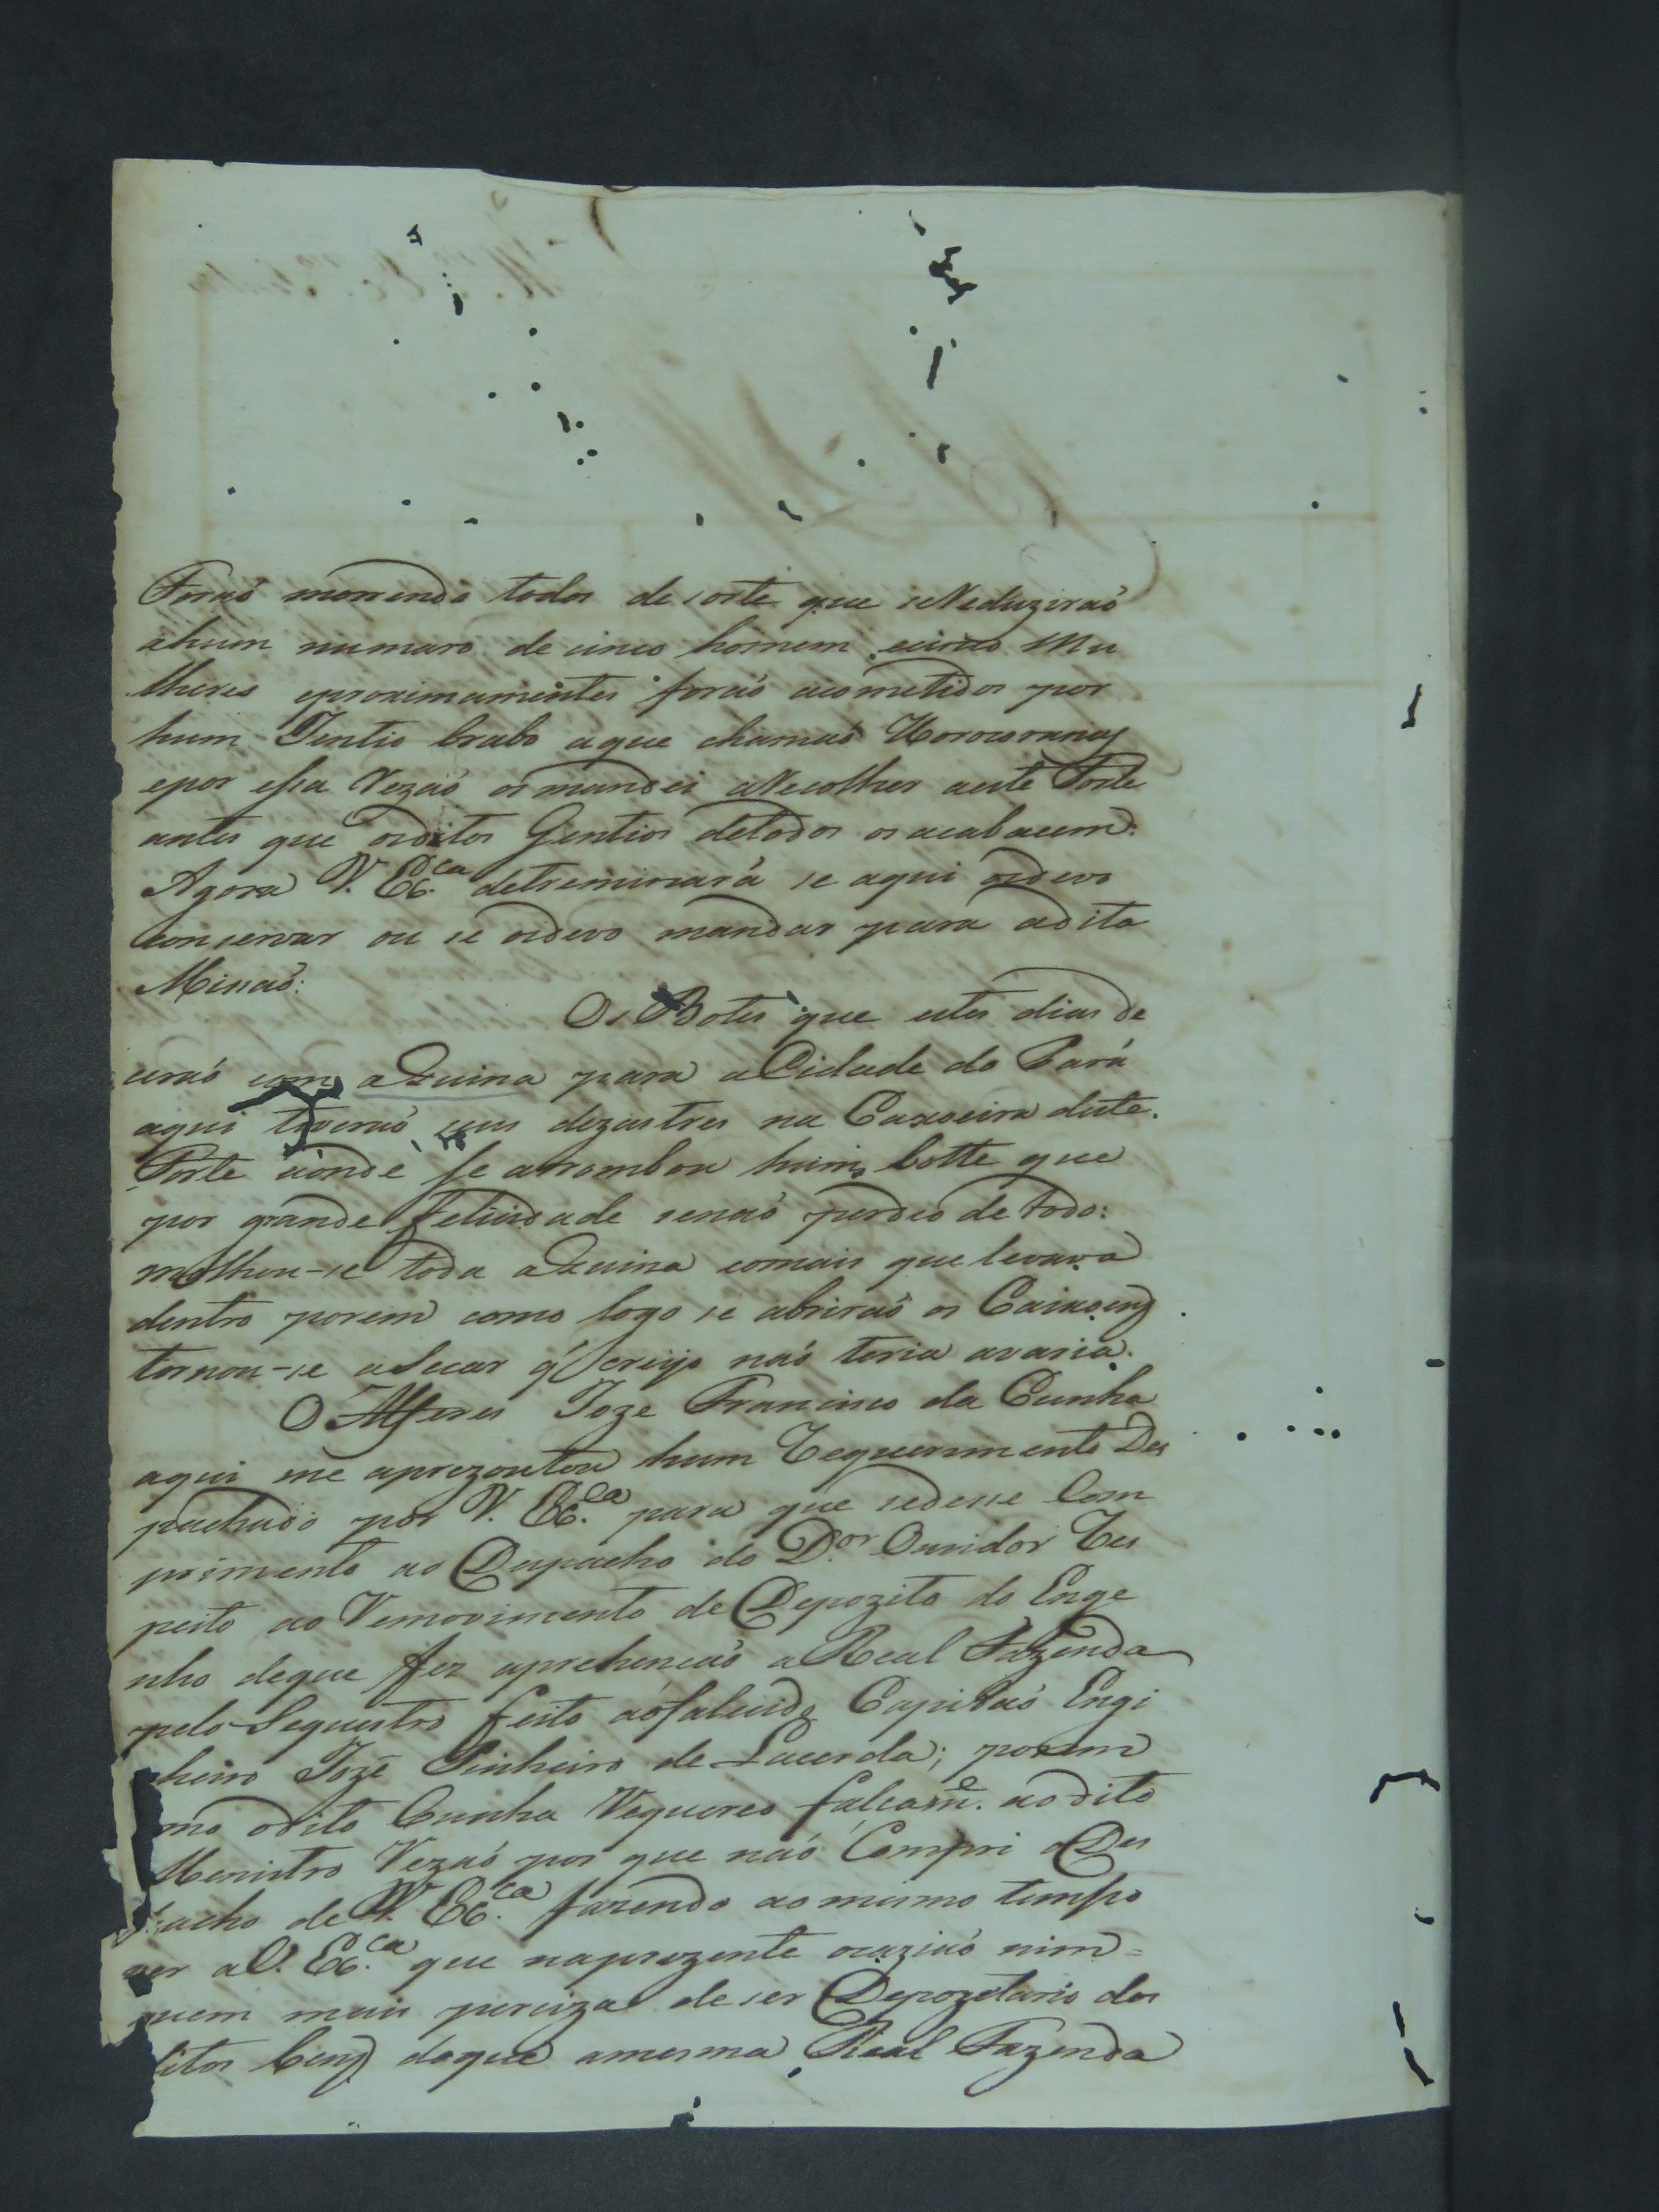 Foraõ morrendo todos de sorte que seReduziraõ
ahum numaro de cinco homem ecinco Mu
lheres eproximamentes foraõ acometidos por
hum Jentio brabo aque chamaõ
epor essa Rezaõ osmandei aRecolher aeste Forte
antes que osditos Gentios detodos os acabacem:
Agora V. Ex.ca detreminará se aqui osdevo
conservar ou se osdevo mandar para adita
Misaõ:
Os Botes que estes dias de
ceraõ com aQuina para aCidade do Pará
aqui tiveraõ seus dezastres na Caxoeira deste
Forte aonde se arrombou hum botte que
por grande felicidade senaõ perdeo de todo:
molhou-se toda aQuina comais que levava
dentro porem como logo se abriraõ os Caixoens
tornou-se aSecar q' creijo naõ teria avaria.
O Alferes Joze Francisco da Cunha
aqui me aprezontou hum Requerimento Des
pachado por V. Ex.ca para que sedesse Com
primento ao Despacho do D.or Ouvidor Res
peito ao Removimento de Depozito do Enge
nho deque fez aprehencaõ a Real Fazenda
pelo Sequestro feito aofalecido Capitaõ Engi
nheiro Jozé Pinheiro de Lacerda; porem
mo odito Cunha Requereo falcam.e aodito
Menistro Rezaõ por que naõ Compri oDes
pacho de V. Ex.ca fazendo ao mesmo tempo
ver aV. Ex.ca que naprezente ocaziaõ nim=
guem mais perciza de ser Depozetario dos
ditos bens doque amesma Real Fazenda